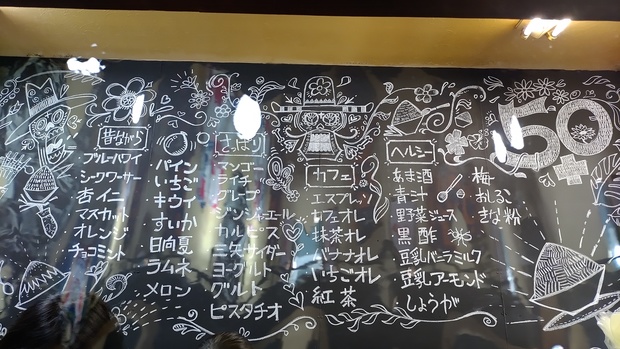 昔ながら
ブルーハワイ
シークワーサー
杏仁
マスカット
オレンジ
チョコミント
パイン
いちご
キウイ
すいか
日向夏
ラムネ
メロン
さっぱり
マンゴー
ライチ
グレープ
ジンジャエール
カルピス
三矢サイダー
ヨーグルト
ピスタチオ
カフェ
エスプレッソ
カフェオレ
抹茶オレ
バナナオレ
いちごオレ
紅茶
ヘルシー
あま酒
青汁
野菜ジュース
黒酢
豆乳バニラミルク
豆乳アーモンド
しょうが
梅
おしるこ
きな粉
50+